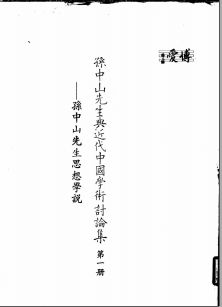 博愛
孫中山先生與近代中國學術討論集 第一册
——孫中山先生思想學說